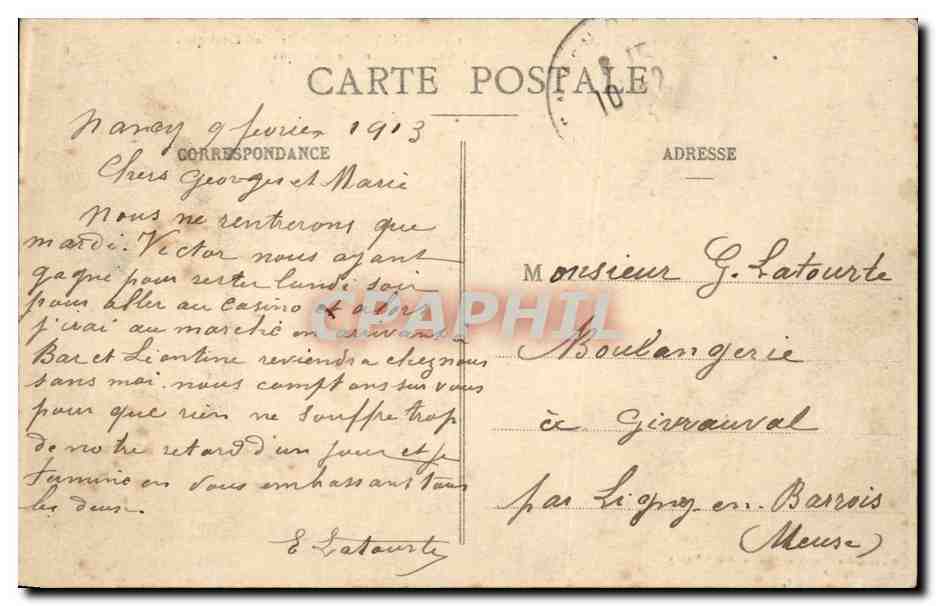 CARTE POSTALE
Nancy 9 février 1913
CORRESPONDANCE
Chers Georges et Marie
Nous ne rentrerons que
mardi. Victor nous ayant
gagné pour rester lundi soir
pour aller au casino et alors
j'irai au marché en arrivant à
Bar et Léontine reviendra chez nous
sans moi. nous comptons sur vous
pour que rien ne souffre trop
de notre retard d'un jour et je
termine en vous embrassant tous
les deux.
E Latourte
ADRESSE
Monsieur G. Latourte
Boulangerie
à Givrauval
par Ligny-en-Barrois
(Meuse)
CPAPHIL
10